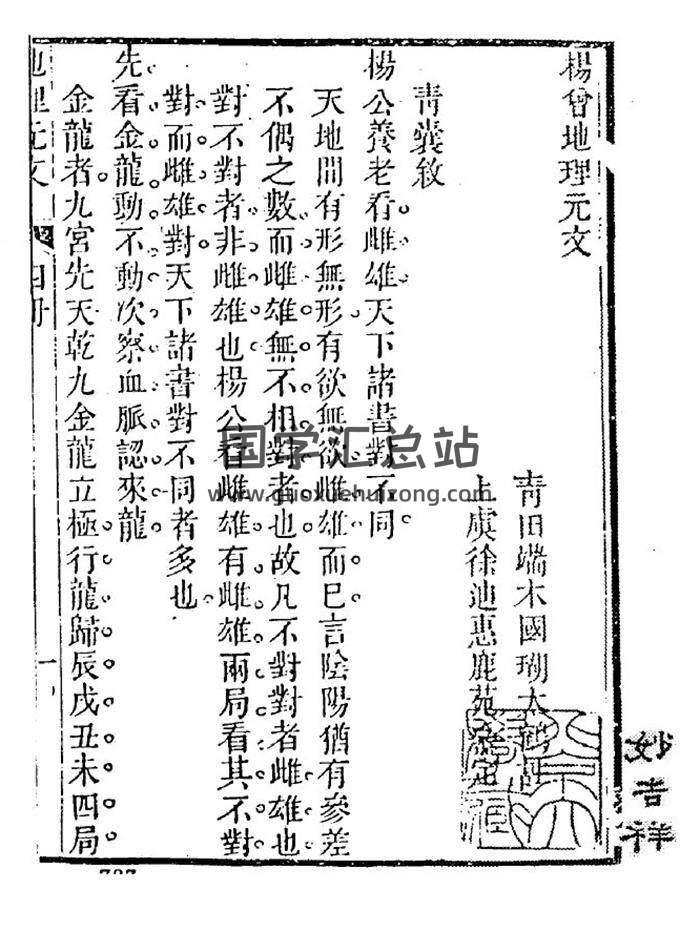 楊曾地理元文
青田端木國瑚太鶴
上虞徐迪惠鹿苑
青囊敘
楊公養老看雌雄天下諸書對不同
天地間有形無形有欲無欲雌雄而巳言陰陽猶有參差
不偶之數而雌雄無不相對者也故凡不對對者雌雄也
對不對者非雌雄也楊公看雌雄有雌雄兩局看其不對
對而雌雄對天下諸書對不同者多也
先看金龍動不動次察血脈認來龍
金龍者九宮先天乾九金龍立極行龍歸辰戌丑未四局
地理元文
四冊
一
妙吉祥
国学汇总站
www.guoxuehuizong.com